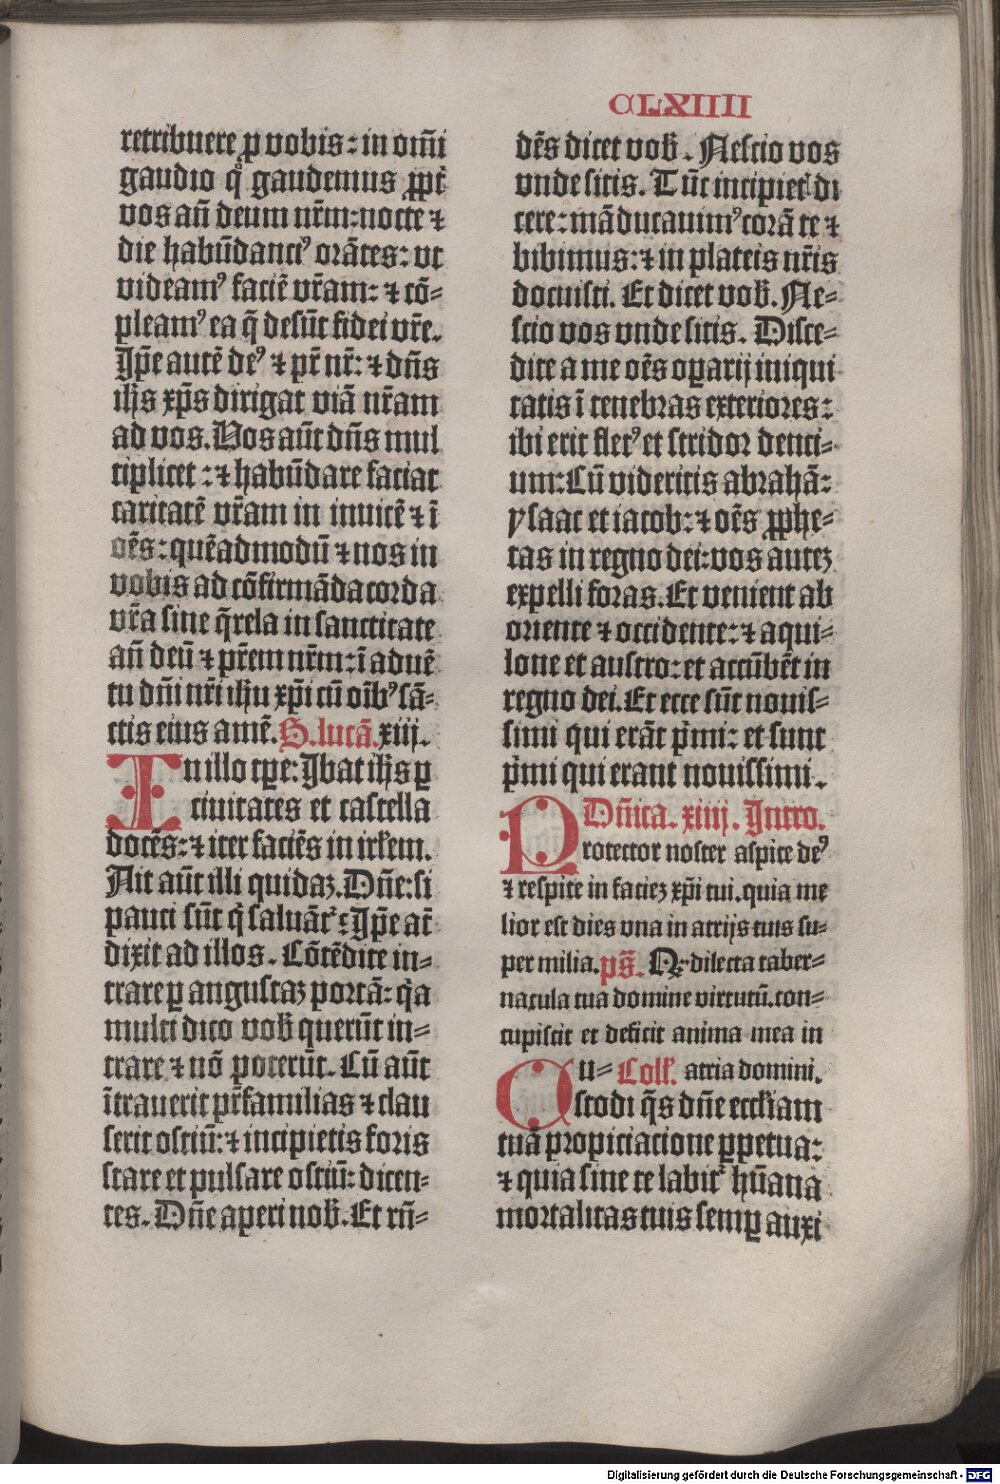 CLXIIII
retribuere ꝑ vobis: in om̄i
gaudio qͦ gaudemus ꝓpt̄
vos an̄ deum nr̄m: nocte ⁊
die habūdanciꝰ orātes: vt
videamꝰ faciē vr̄am: ⁊ cō⸗
pleamꝰ ea q̄ desūt fidei vr̄e.
Ip̄e autē deꝰ ⁊ pr̄ nr̄: ⁊ dn̄s
ih̄s xp̄s dirigat viā nr̄am
ad vos. Vos aūt dn̄s mul
tiplicet: ⁊ habūdare faciat
caritatē vr̄am in inuicē ⁊ ī
oēs: quēadmodū ⁊ nos in
vobis ad cōfirmāda corda
vr̄a sine q̄rela in sanctitate
an̄ deū ⁊ pr̄em nr̄m: ī aduē
tu dn̄i nr̄i ih̄u xp̄i cū oīb9 sā⸗
ctis eius amē. S. lucā. xiij.
In illo tꝑe: Ibat ih̄s ꝑ
ciuitates et castella
docēs: ⁊ iter faciēs in irl̄em.
Ait aūt illi quidaꝫ. Dn̄e: si
pauci sūt q̄ saluāt᷑: Ip̄e at̄
dixit ad illos. Cōtēdite in⸗
trare ꝑ angustaꝫ portā: q̄a
multi dico vob̄ querūt in⸗
trare ⁊ nō poterūt. Cū aūt
ītrauerit pr̄familias ⁊ clau
serit ostiū: ⁊ incipietis foris
stare et pulsare ostiū: dicen⸗
tes. Dn̄e aperi nob̄. Et rn̄⸗
dēs dicet vob̄. Nescio vos
vnde sitis. Tūc incipiet di
cere: māducauimꝰ corā te ⁊
bibimus: ⁊ in plateis nr̄is
docuisti. Et dicet vob̄. Ne⸗
scio vos vnde sitis. Disce⸗
dite a me oēs oꝑarij iniqui
tatis ī tenebras exteriores:
ibi erit fletꝰ et stridor denti⸗
um: Cū videritis abrahā:
ysaac et iacob: ⁊ oēs ꝓphe⸗
tas in regno dei: vos auteꝫ
expelli foras. Et venient ab
oriente ⁊ occidente: ⁊ aqui⸗
lone et austro: et accūbēt in
regno dei. Et ecce sūt nouis⸗
simi qui erāt p̄mi: et sunt
p̄mi qui erant nouissimi.
Dn̄ica. xiiij. Intro.
Protector noster aspice deꝰ
⁊ respice in facieꝫ xp̄i tui. quia me
lior est dies vna in atrijs tuis su⸗
per milia. ps̄. Q̄ dilecta taber⸗
nacula tua domine virtutū. con⸗
cupiscit et deficit anima mea in
Cu⸗ Coll̄. atria domini.
stodi q̄s dn̄e eccl̄iam
tuā propiciacione ꝑpetua:
⁊ quia sine te labit᷑ hūana
mortalitas tuis semꝑ auxi
Digitalisierung gefördert durch die Deutsche Forschungsgemeinschaft - DFG